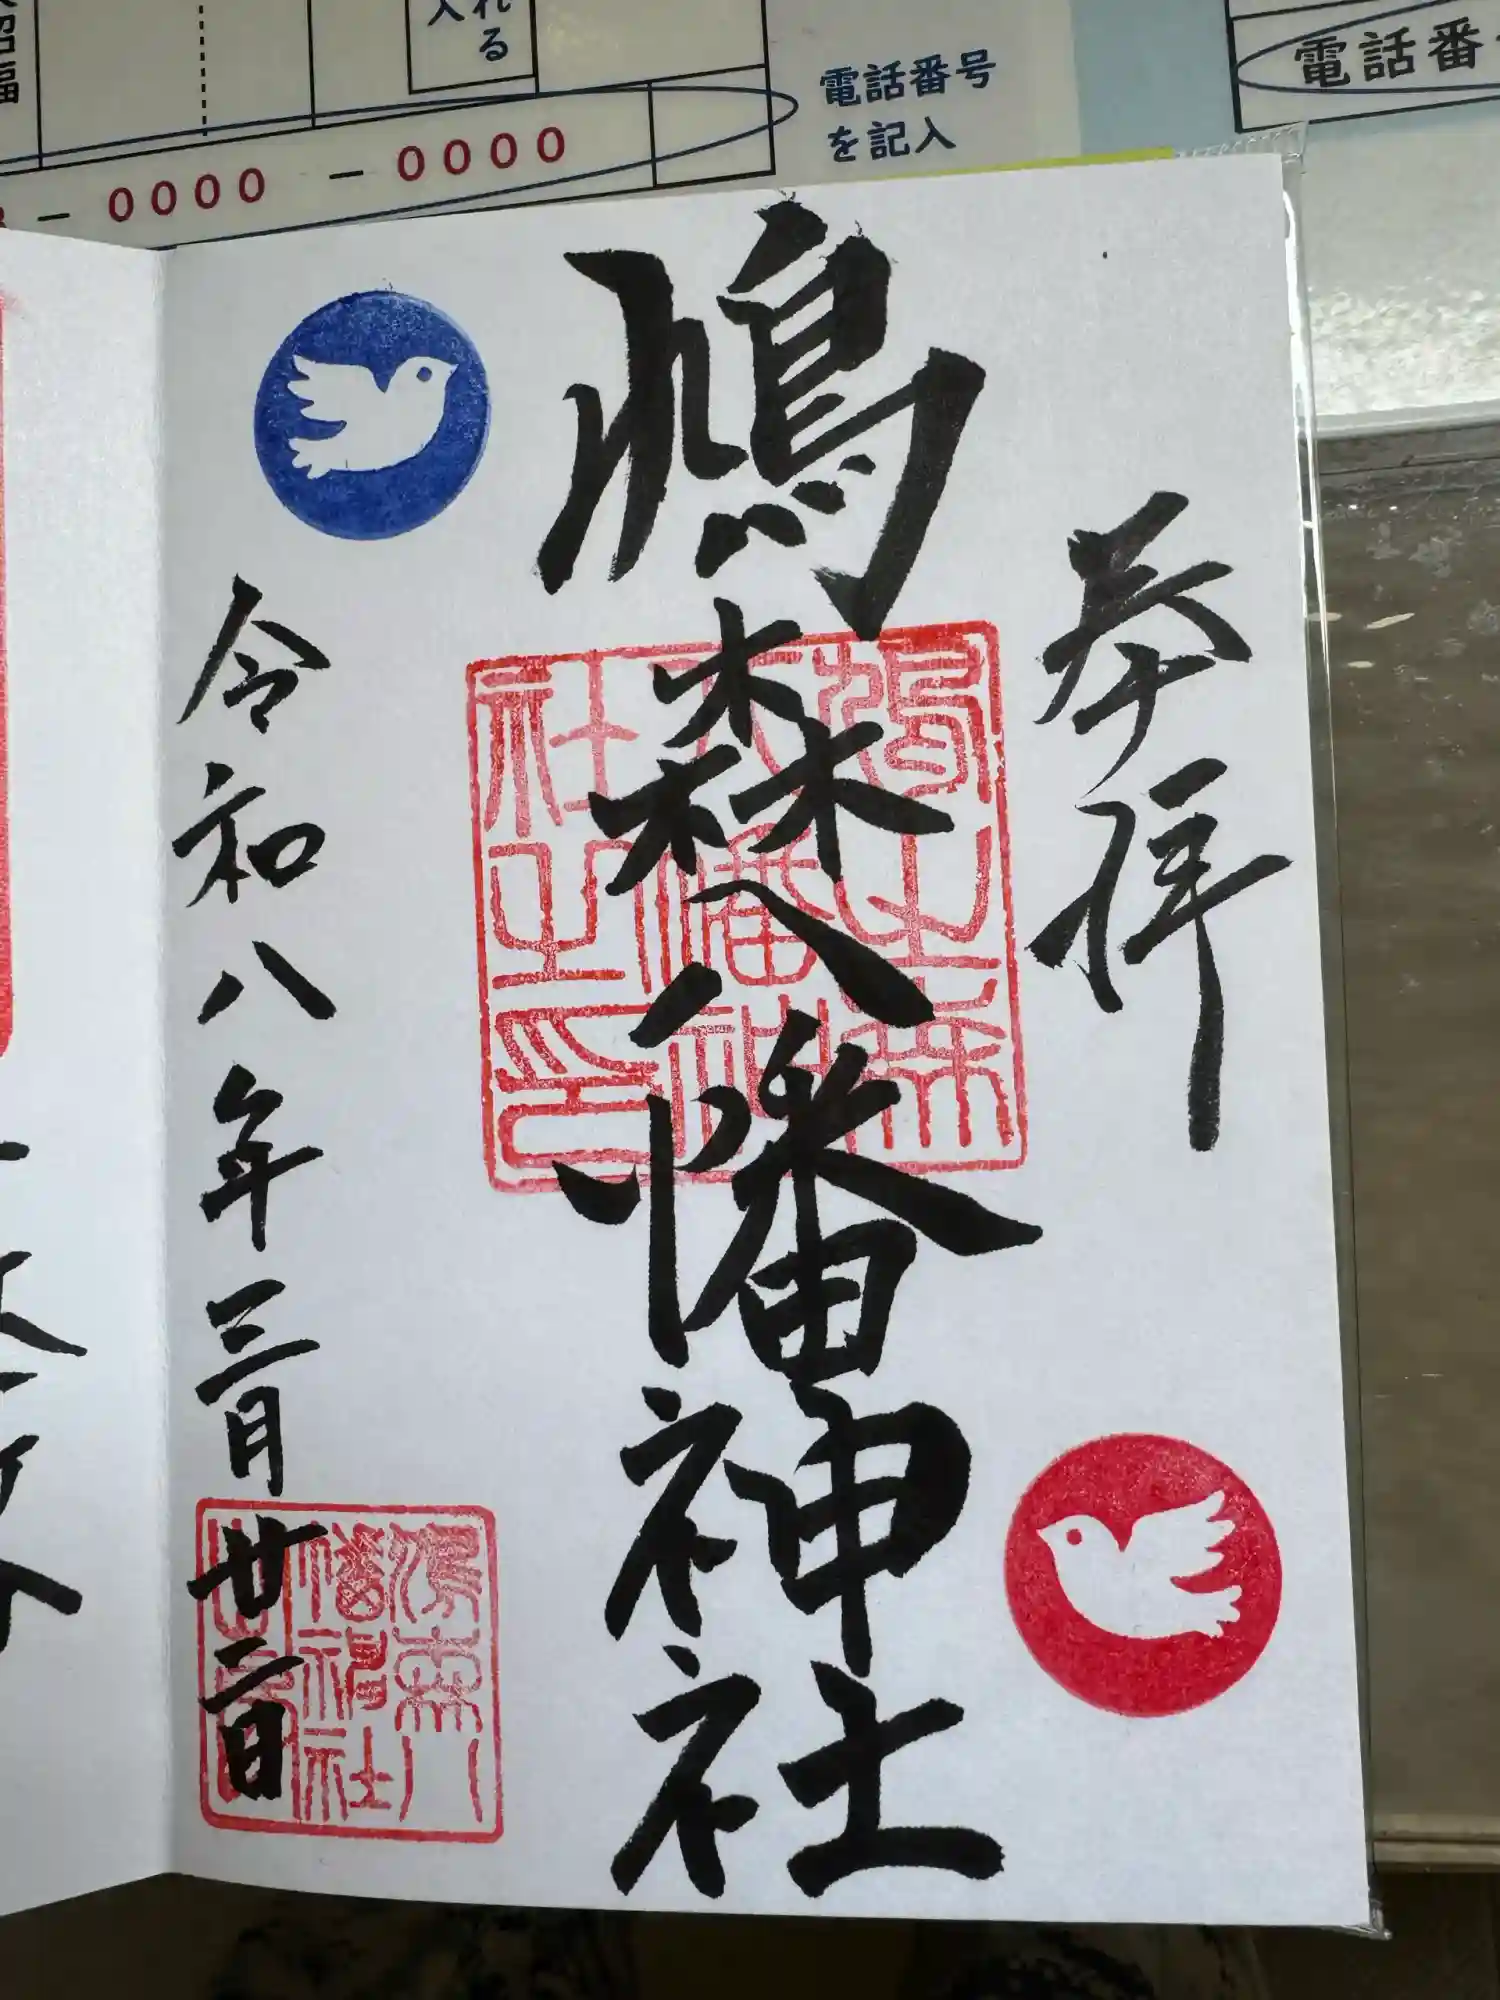 入れる
電話番号
を記入
- 0000 - 0000
電話番号
奉拝
鳩森八幡神社
鳩之森
八幡神
社之印
令和八年三月廿二日
鳩森八
幡神社